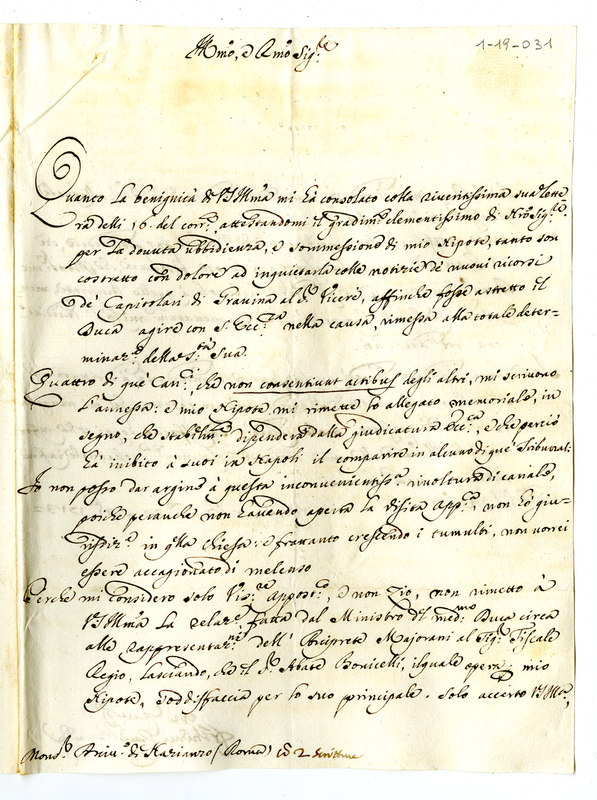 1-19-031
Ill.mo, e R.mo Sig.re
Quanto la benignità di V.S. Ill.ma mi hà consolato colla riveritissima sua lette
ra delli 16. del cor.e attestandomi il gradim.to clementissimo di N.ro Sig.re,
per la dovuta ubbidienza, e sommessione di mio Nipote, tanto son
costretto con dolore ad inquietarla colle notizie dè nuovi ricorsi
dè Capitolari di Gravina al S.r Vicerè, affinche fosse astretto il
Duca agire con S. Ecc.za nella causa, rimessa alla totale deter-
minaz.e della S.tà Sua.
Quattro di què Can.ci, che non consentiunt actibus degli altri, mi scrivono
l'annessa: e mio Nipote mi rimette lo allegato memoriale, in
segno, che stabilm.te dipenderà dalla giudicatura Ecc.ca, e che perciò
hà inibito à suoi in Napoli il comparire in alcuno di què Tribunali
Io non posso dar argine à questa inconvenientiss.a rivoltura di canale,
poiche peranche non havendo aperta la Visita App.ca, non hò giu-
risdiz.e in q.lla chiesa: e frattanto crescendo i tumulti, non vorrei
essere accagionato di melenso
Perchè mi considero solo Vis.re Appost.co, e non Zio, non rimetto à
V.S. Ill.ma la relaz.e fatta dal Ministro del med.mo Duca circa
alle rappresentaz.ni dell' Arciprete Majorani al Sig.r Fiscale
Regio, lasciando, che il S.r Abate Bonicelli, il quale opera p. mio
Nipote, soddisfaccia per lo suo principale. Solo accerto V.S. Ill.ma,
Mons.r Arciv.o di Nazianzo (Roma) con 2 scritture